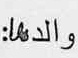 والدها: